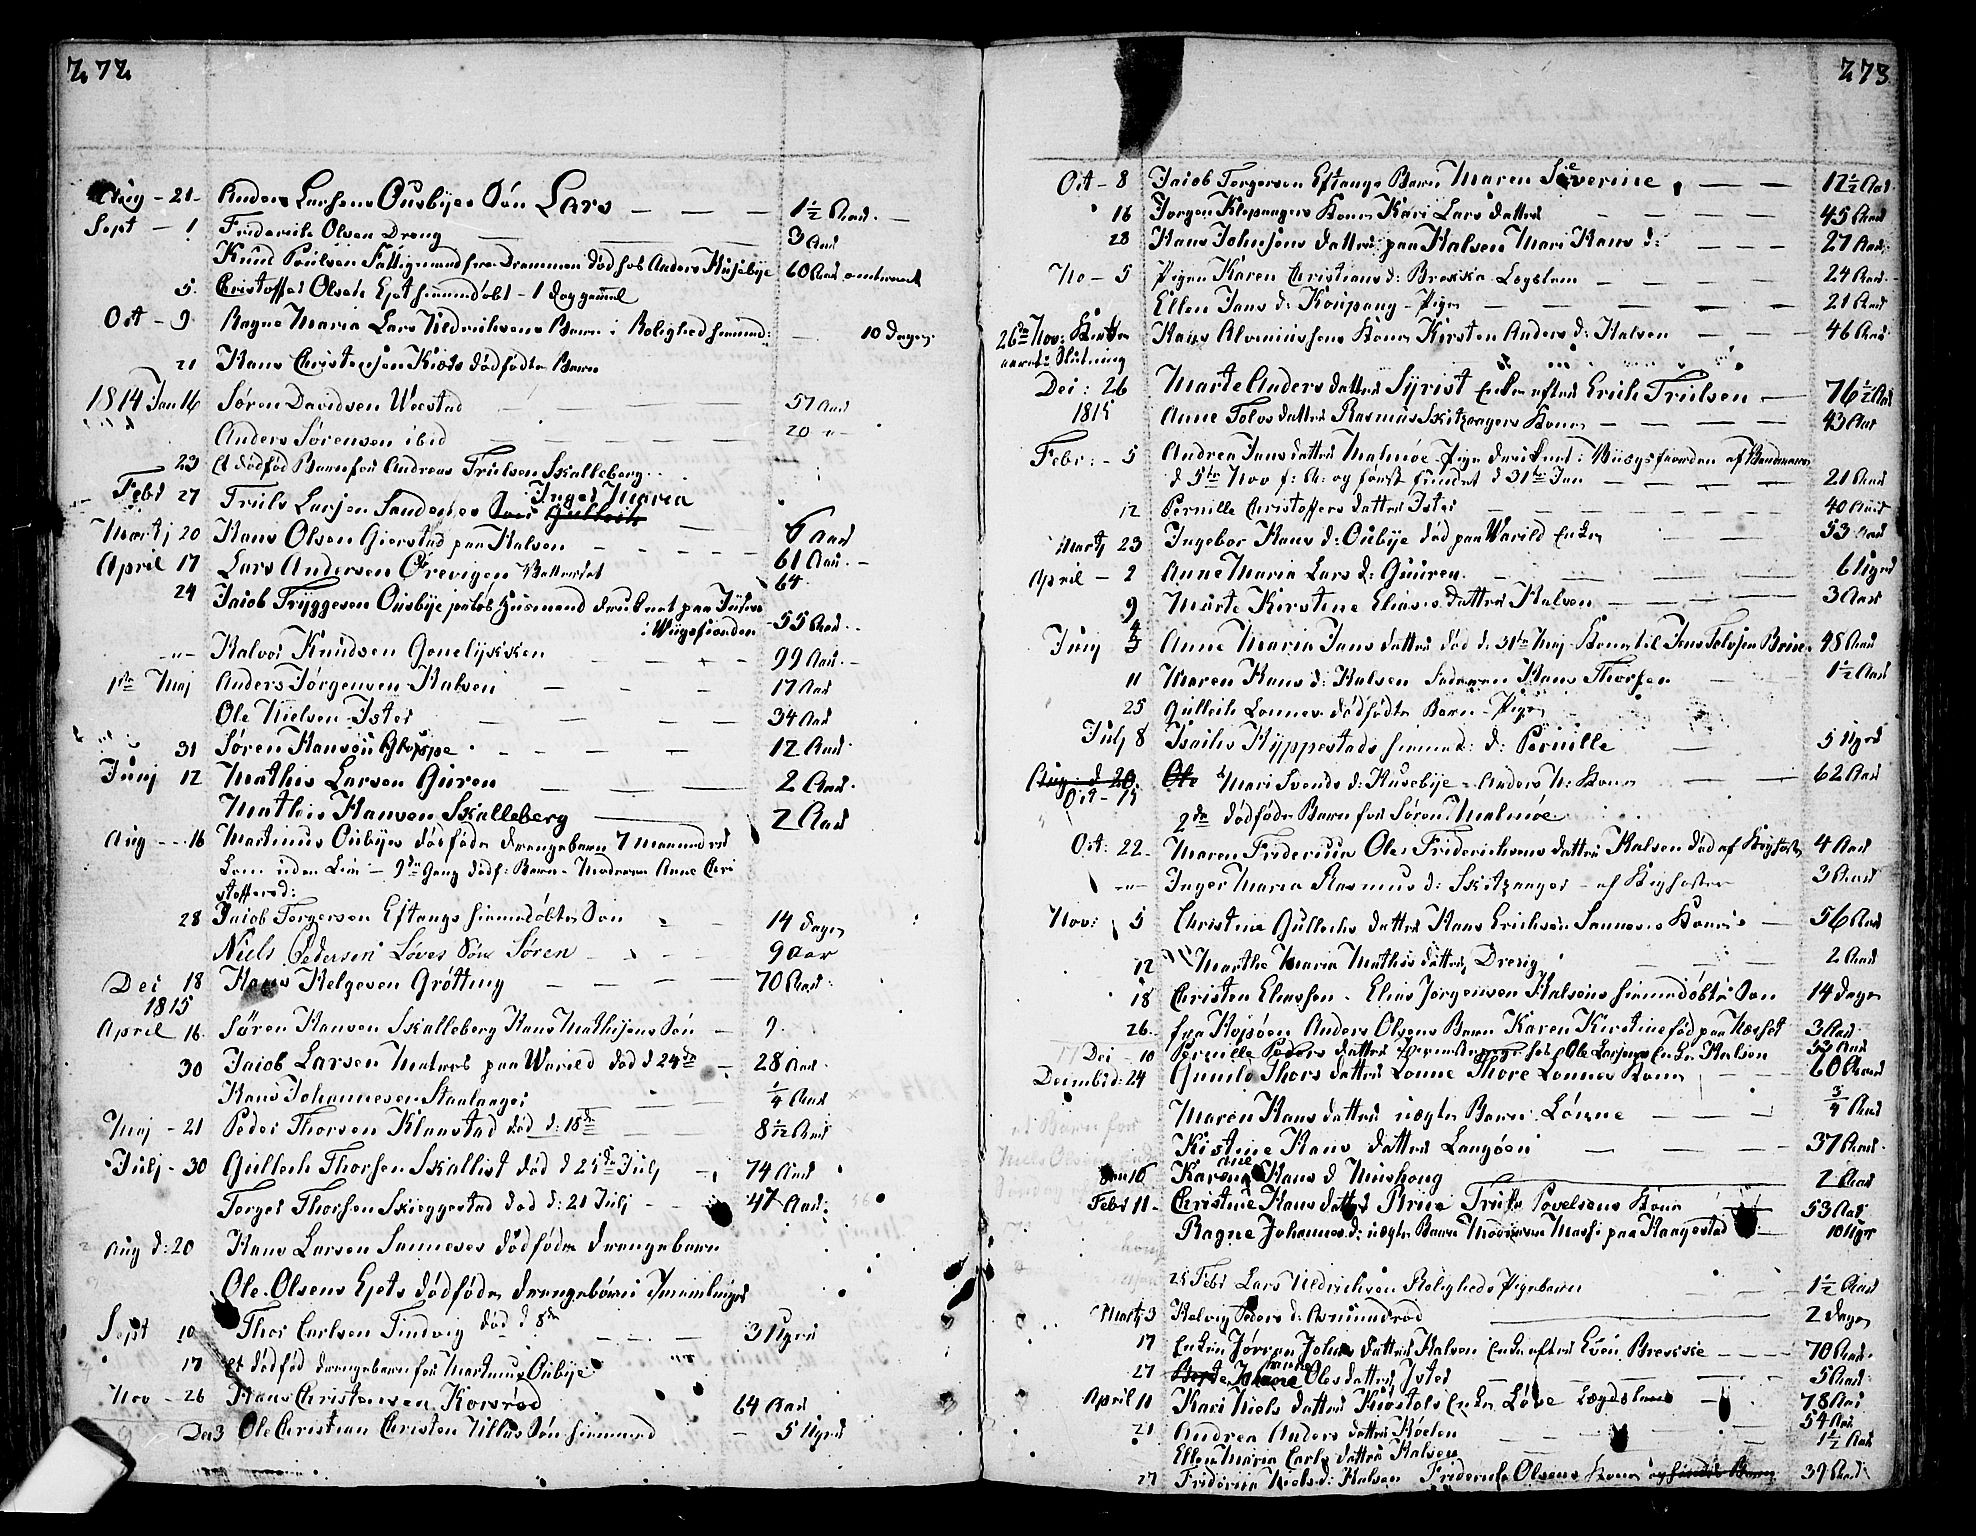 272
Aug - 21 - Anders Larsens Ousbyes Søn Lars — 1½ Aar. —
Sept - 1 Friderich Olsen Dreng — 3 Aar
Knud Poulsen Fattigmand fra Drammen død hos Anders Husebye 60 Aar omtrent
5. Christoffer Olsen Ejet hiemmdøbt - 1 dag gammel
Oct - 9 Ragne Maria Lars Uldrichsens Barn i Rolighed hiemmd: — 10 Dager
21 Hans Christensen dødfødte Barn
1814 Jan 16 Søren Davidsen Weestad — 57 Aar
Anders Sørensen ibid — 20 -"-
23 Et dødfød Barn for Andreas Trulsen Skalleberg
Febr 27 Truls Larsen Sandenes Inger Maria
Martj 20 Hans Olsen Gierstad paa Halsen — 6 Aar
April 17 Lars Andersen Ørevigen — 61 Aar. —
64
24 Jacob Tryggesen Ousbye Husmand druknet paa
i Wiigsfiorden - 55 Aar
-"- Halvor Knudsen Gonelykken — 99 Aar. —
1ste Maj Anders Jørgensen Halsen — 17 Aar
Ole Nielsen Ister — 34 Aar
31 Søren Hansen Gloppe — 12 Aar
Junj 12 Mathis Larsen Guren — 2 Aar.
Mathis Hansen Skalleberg — 2 Aar
Aug - 16 Martinus Oubyes dødfødte Drengebarn 7 Maaneders
uden Liv - 9de Gang dødf: Barn - Moderen Anne Chri
stoffersd:
28 Jacob Torgersen Eftangs hiemmdøbte Søn — 14 Dager
Niels Pedersen Løves Søn Søren — 9 Aar
Dec 18 Hans Helgesen Grøtting — 70 Aar
1815
April 16. Søren Hansen Skalleberg Hans Mathisens Søn — 9.
30 Jacob Larsen paa Warild død d 24de — 28 Aar
Hans Johannesen Stavlanger — ¼ Aar
Maj - 21 Peder Thorsen Klaastad død d: 18de — 8½ Aar
Julj - 30 Gullech Thorsen Skallist død d 25de Julj — 74 Aar
Torger Thorsen Skieggestad død d: 21 Julj — 47 Aar
Aug d: 20 Hans Larsen Sannesес dødfødte Drengebarn
Ole Olsens Ejets dødfødte Drengebørn Tvenlinger
Sept 10 Thor Carlsen Tindvig død d 8de — 3 Uger
17 et dødfød Drengebarn for Martinus Oubye -"-
Nov - 26 Hans Christensen Kowrød — 64 Aar
Dec 3 Ole Christian Christen Ullas Søn hiemmd — 5 Uger
273
Oct - 8 Jacob Torgersen Eftangs Barn Maren Severine — 12½ Aar
16 Jørgen Klepaagers Kone Kari Lars datter — 45 Aar
28 Hans Johnsens datter paa Halsen Mari Hans d: — 27 Aar
No - 5 Pigen Karen Christians d: Brekka Legdslem — 24 Aar
Ellen Jans d: Koupang - Pige — 21 Aar
26de Nov: Kirke Hans Kone Kirsten Anders d: Halsen — 46 Aar
aarets Slutning
Dec: 26 Marte Anders datter Syrist Enke efter Erich Trulsen — 76½ Aar
1815 Anne Tolvs datter Rasmus Skitzaagers Kone — 43 Aar
Febr: - 5 Andrea Jans datter Malmøe Pige druknet i Wiigsfiorden af
d 5te Nov f: A: og først fundet d 31te Jan — 21 Aar
12 Pernille Christoffers datter Ister — 40 Aar
Martj 23 Ingebor Hans d: Oubye død paa Warild Enke — 53 Aar
April - 2 Anne Maria Lars d: Guuren — 6 Uger
9 Marte Kirstine Elias datter Halsen — 3 Aar
Junj 4 Anne Maria Jans datter død d: 31te Maj Kone til Jens Tolvsen — 48 Aar
11 Maren Hans d: Halsen Faderen Hans Thorsen — 1½ Aar
25 Gullich Lonnes dødfødte Barn - Pige
Julj 8 Isachs Hyppestads hiemmd: d: Pernille — 5 Uger
Aug: d 20 Ole
Oct - 15 Mari Svends d: Husebye - Anders N: Kone — 62 Aar
2de dødfødte Barn for Søren Malmøe
Oct: 22 - Maren Fridericha Ole Friderichsens datter Halsen død af Kighoste 4 Aar
-"- Inger Maria Rasmus d: Skitzaager - af Kighosten — 3 Aar
Nov: 5 Christine Gullechs datter Hans Erichsen Sannes's Kone — 56 Aar
12 Marthe Maria Mathis datter Dresig — 2 Aar
18 Christen Eliassen - Elias Jørgensen Halsens hiemmdøbte Søn — 14 Dage
26. fra Anders Olsens Barn Karen Kirstine fød paa Næset 3 Aar
Dec - 10 Pernille Peders datter hos Ole Larsens Enke Halsen — 33 Aar
Decembr: 24 Gunild Thors datter Lonne Thore Lonnes Kone — 60 Aar
Maren Hans datter uægte Barn: Lonne — ¾ Aar
Kistine Hans datter Langøen — 37 Aar
Jan 16 Karen Hans d — 2 Aar
Febr 11 - Christine Hans datter Truls Povelsens Kone — 53 Aar
Ragne Johannes d: uægte Barn Moderen Mari paa Haagestad — 10 Uger
25 Febr Lars Uldrichsen Rolighets Pigebarn — 1½ Aar
Martj 3 Helvig Peders d: Asmundrød — 2 Dage
17 Enken Jørren Johns datter Halsen Enke efter Even — 70 Aar
27 Johanne Ols datter Ister — 5 Aar
April 11 Kari Niels datter Enke Løve Legdslem — 78 Aar
21 Andrea Anders datter — 54 Aar
Ellen Maria Carls datter Halsen — 1½ Aar
27 Friderica Niels d: Halsen Friderich Olsens Kone — 39 Aar